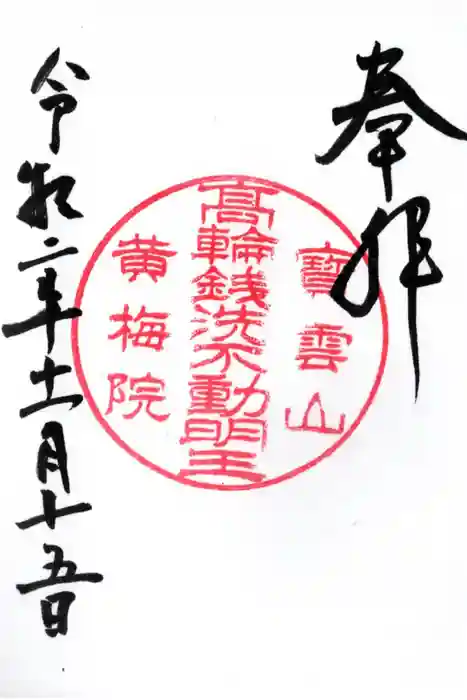 奉拝
寶雲山
髙輪銭洗不動明王
黄梅院
令和二年十一月十五日